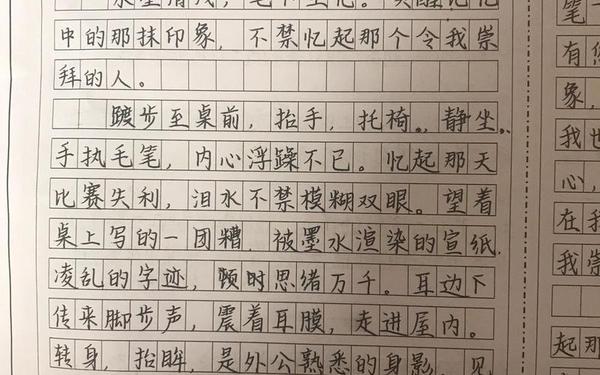 水墨清浅，笔下生花。
中的那抹印象，不禁忆起那个令我崇
拜的人。
踱步至桌前，抬手，托椅，静坐。
手执毛笔，内心浮躁不已。忆起那天
比赛失利，泪水不禁模糊双眼。望着
桌上写的一团糟，被墨水渲染的宣纸，
凌乱的字迹，顿时思绪万千。耳边下
传来脚步声，震着耳膜，走进屋内。
转身，抬眸，是外公熟悉的身影，见
笔一
有您
象，
我也
心，
在我
我崇
起那